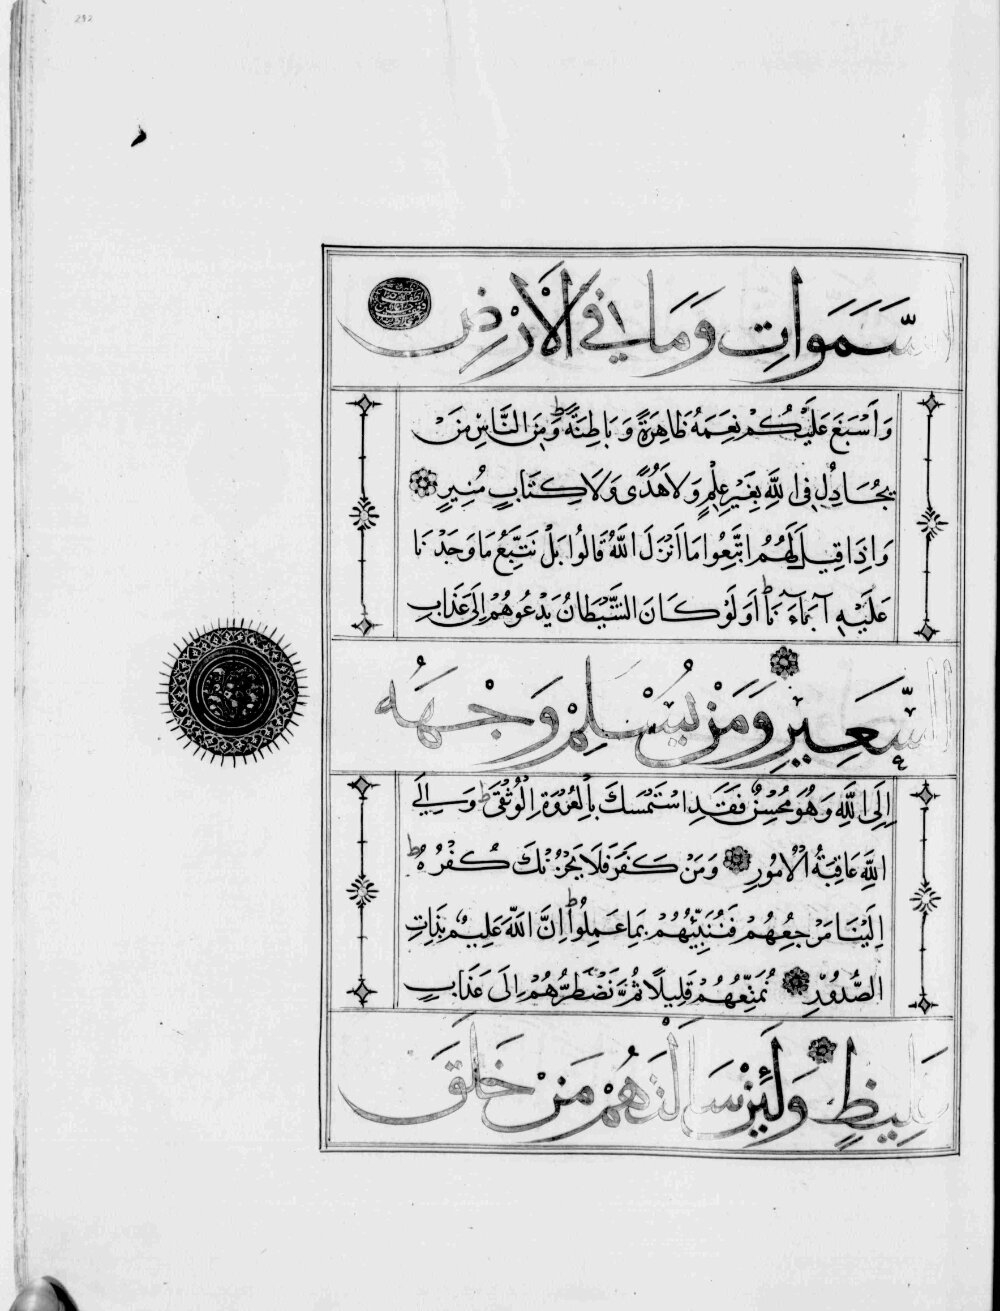 السَّمَوَاتِ وَمَا فِي الْأَرْضِ
وَأَسْبَغَ عَلَيْكُمْ نِعَمَهُ ظَاهِرَةً وَبَاطِنَةً ۗ وَمِنَ النَّاسِ مَنْ
يُجَادِلُ فِي اللَّهِ بِغَيْرِ عِلْمٍ وَلَا هُدًى وَلَا كِتَابٍ مُنِيرٍ
وَإِذَا قِيلَ لَهُمُ اتَّبِعُوا مَا أَنْزَلَ اللَّهُ قَالُوا بَلْ نَتَّبِعُ مَا وَجَدْنَا
عَلَيْهِ آبَاءَنَا ط أَوَلَوْ كَانَ الشَّيْطَانُ يَدْعُوهُمْ إِلَى عَذَابِ
السَّعِيرِ وَمَنْ يُسْلِمْ وَجْهَهُ
إِلَى اللَّهِ وَهُوَ مُحْسِنٌ فَقَدِ اسْتَمْسَكَ بِالْعُرْوَةِ الْوُثْقَى ط وَإِلَى
اللَّهِ عَاقِبَةُ الْأُمُورِ وَمَنْ كَفَرَ فَلَا يَحْزُنْكَ كُفْرُهُ ط
إِلَيْنَا مَرْجِعُهُمْ فَنُنَبِّئُهُمْ بِمَا عَمِلُوا ط إِنَّ اللَّهَ عَلِيمٌ بِذَاتِ
الصُّدُورِ نُمَتِّعُهُمْ قَلِيلًا ثُمَّ نَضْطَرُّهُمْ إِلَى عَذَابٍ
غَلِيظٍ وَلَئِنْ سَأَلْتَهُمْ مَنْ خَلَقَ